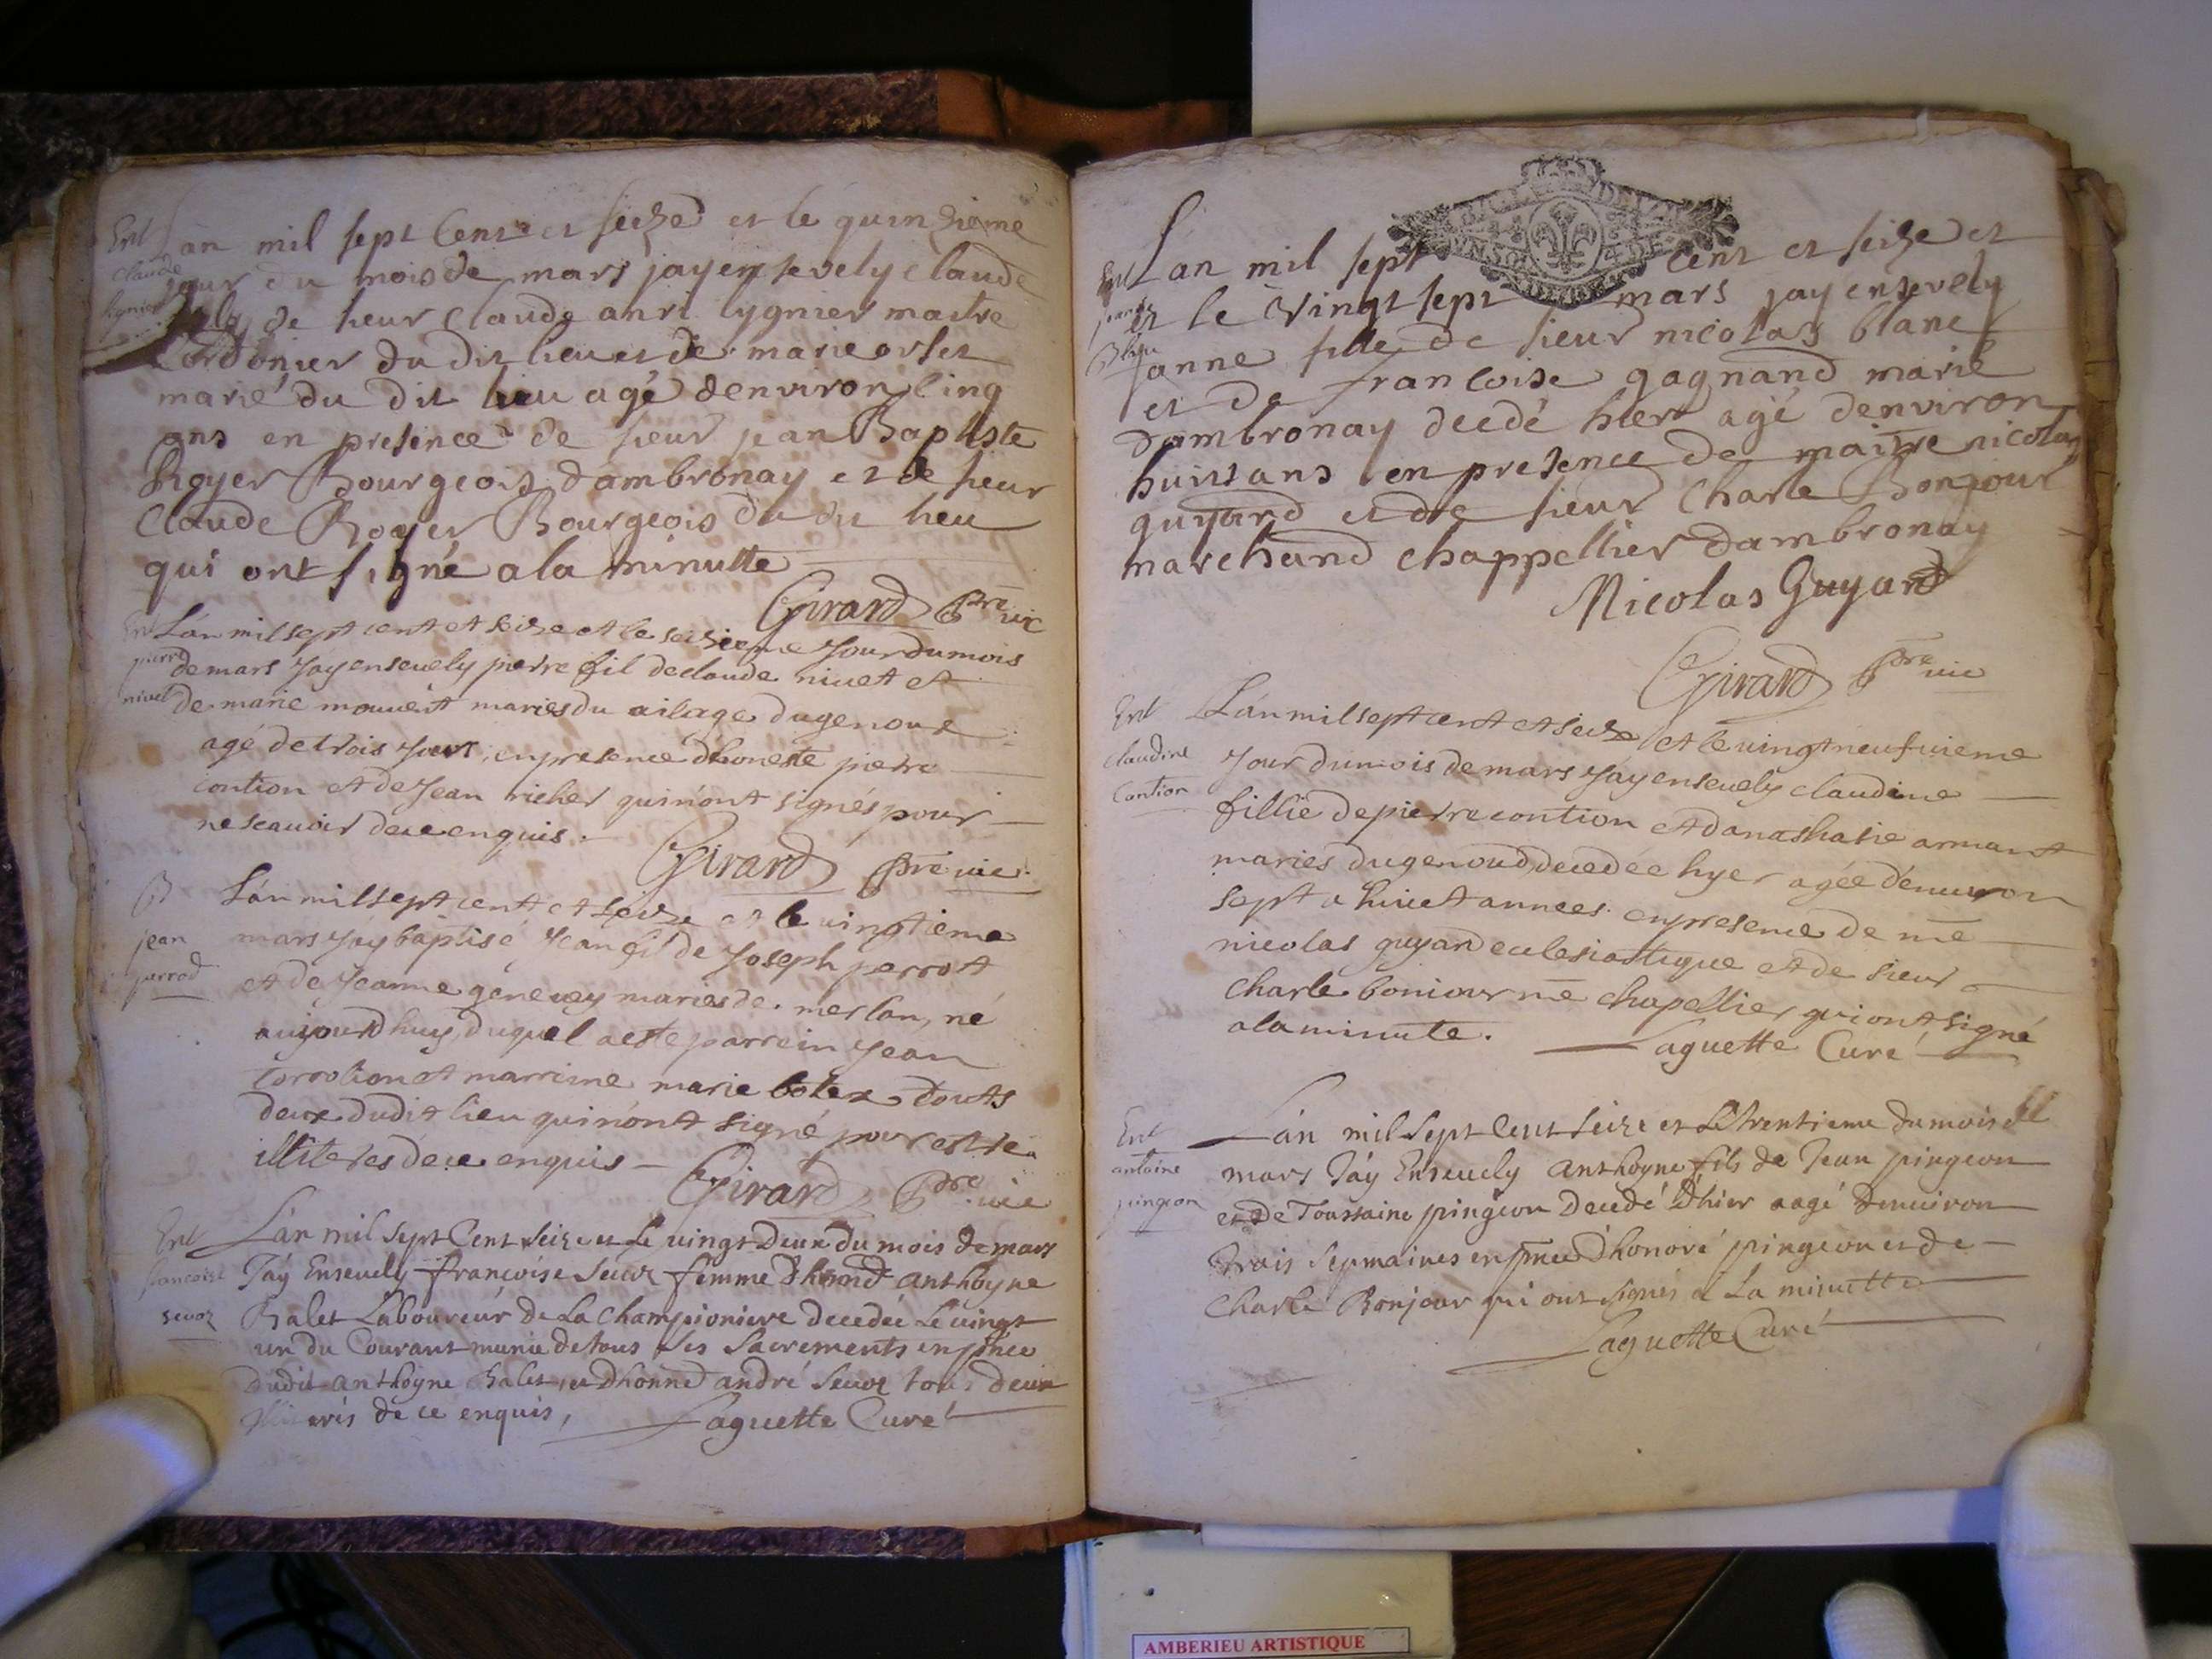 Ent
claude
lignier
Lan mil sept Cent et seize et le quinzieme
jour du mois de mars jay ensevely claude
de sieur claude anri lygnier maitre
Cordonier du dit lieu et de marie orset
marié du dit lieu agé denviron cinq
ans en presence de sieur jean Baptiste
Royer Bourgeois dambronay et de sieur
Claude Royer Bourgeois du dit lieu
qui ont signé a la minutte
Girard Pre vic
Ent
pierre
nivet
Lán mil sept cent et seize et le seizieme Jour du mois
de mars Jay ensevely pierre fil de claude nivet et
de marie mariés du vilage dugenoux
agé de trois Jour, en presence dhoneste pierre
contion et de Jean richer qui n'ont signés pour
ne scavoir de ce enquis.
Girard pre vic
B
jean
perrod
Lán mil sept cent et seize et le vingtieme
mars Jáy baptisé Jean fil de Joseph perrot
et de Jeanne genevey mariés de merlan, né
aujourdhuy, duquel a este parrein Jean
et marrine marie botex touts
deux dudit lieu qui n'ont signé pour estre
illiteres de ce enquis
Girard Pre vic
Ent
francoise
sevoz
Lán mil sept Cent seize et le vingt Deux du mois de mars
Jáy Ensevely francoise Sevoz femme Dhonnd anthoyne
Balet Laboureur de La Championiere decedée Le vingt
un du Courant munie de tous Ses Sacrements en pnce
dudit anthoyne Balet, et Dhonned andré Sevoz tous deux
de ce enquis,
Laguette Curé
Ent
jeanne
Lán mil sept cent et seize et
et le vingt sept mars jay ensevely
janne fille de sieur nicolas blanc
et de francoise gagnand marié
dambronay decedé hier agé denviron
huit ans en presence de maitre nicolas
guyard et de sieur Charle Bonjour
marchand chappellier dambronay
Nicolas Guyard
Girard Pre vic
Ent
claudine
Contion
Lán mil sept cent et seize et le vingt neufvieme
Jour du mois de mars Jáy ensevely claudine
fillie de pierre contion et danasthasie armant
mariés dugenoud, decedée hyer agée d'environ
sept a huict annees. en presence de me
nicolas guyard eclesiastique et de sieur
charle boniour me chapellier qui ont signé
a la minute.
Laguette Curé
Ent
antoine
pingeon
Lán mil Sept Cent Seize et Le trentieme du mois de
mars Jáy Ensevely anthoyne fils de Jean pingeon
et de Toussaine pingeon Decedé Dhier aagé Denviron
trois Sepmaines en pnce Dhonoré pingeon et de
Charle Bonjour qui ont signés a La minutte
Laguette Curé
AMBERIEU ARTISTIQUE